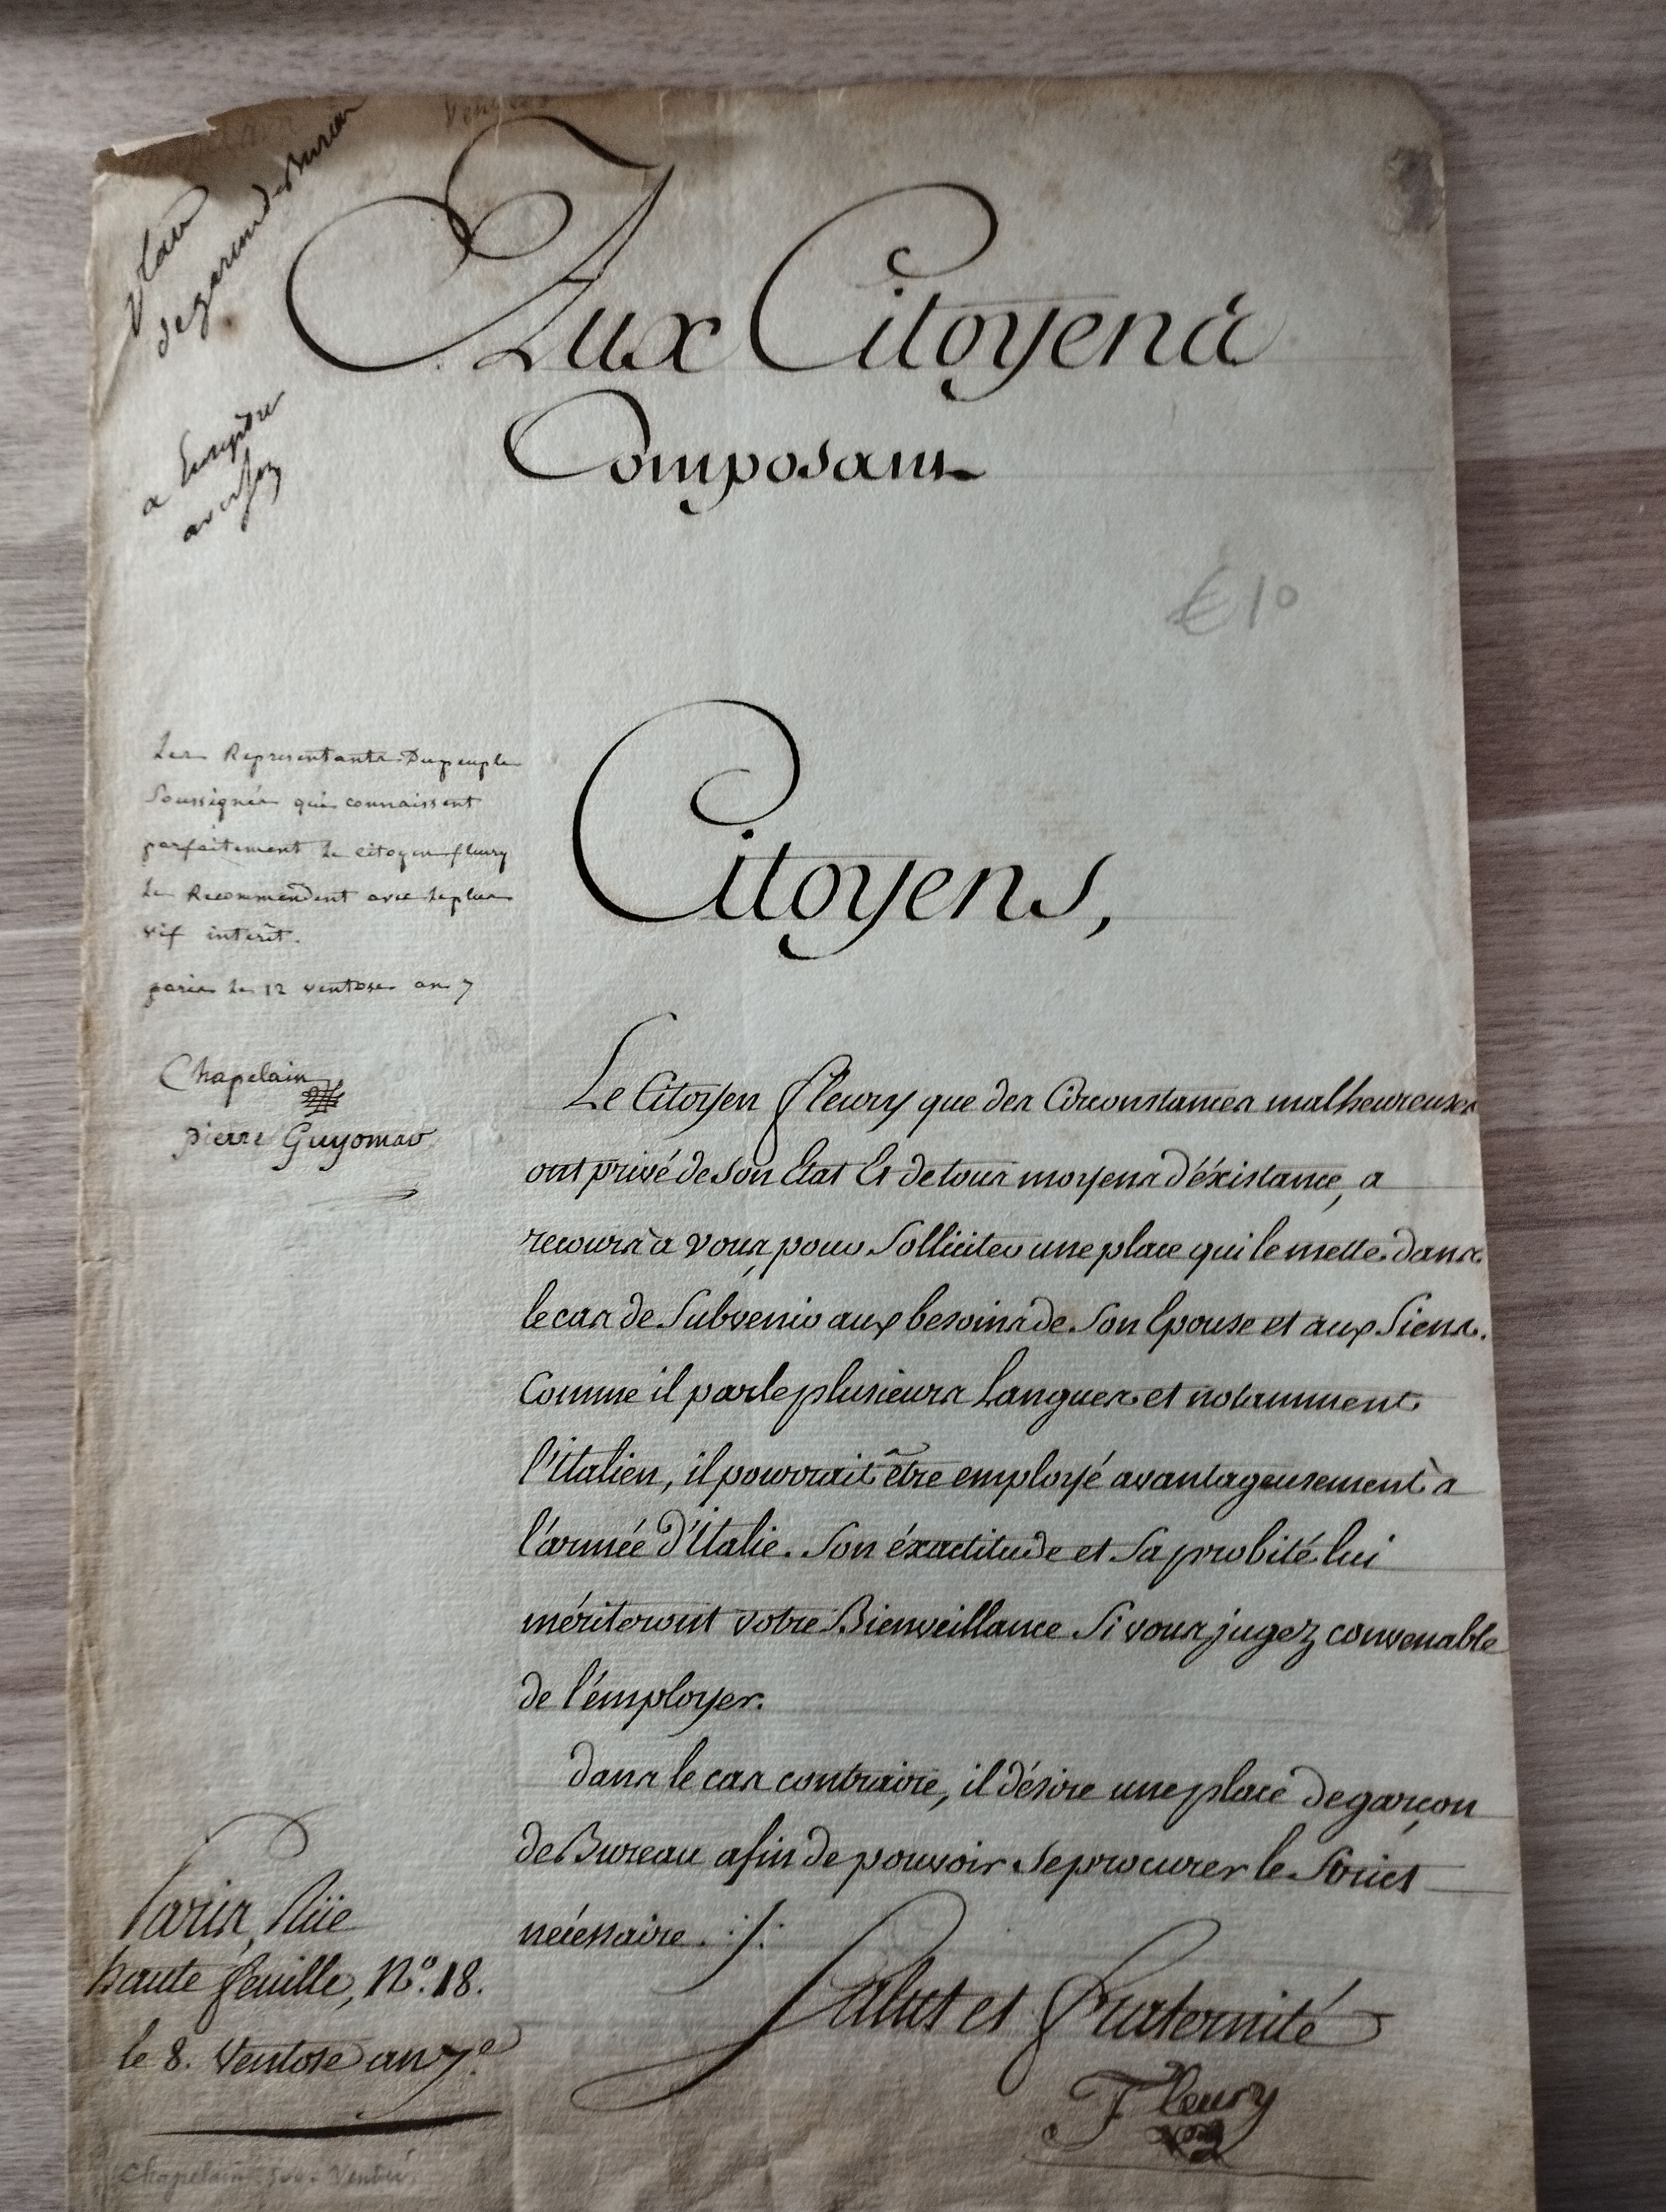 Place
de garçon de Bureau
Aux Citoyens
Composant
a
€10
Citoyens,
Les Representants Du peuple
Soussignés qui connaissent
parfaitement le citoyen fleury
le Recommendent avec le plus
vif intérêt.
paris le 12 ventose an 7
Chapelain
pierre Guyomar
Le Citoyen Fleury que des Circonstances malheureuses
ont privé de son Etat Et de tous moyens d'éxistance, a
recours à vous, pour Solliciter une place qui le mette dans
le cas de Subvenir aux besoins de Son Epouse et aux Siens.
Comme il parle plusieurs Langues et notamment
l'italien, il pourrait être employé avantageusement à
l'armée d'Italie. Son éxactitude et Sa probité lui
mériteront votre Bienveillance Si vous jugez convenable
de l'émployer.
dans le cas contraire, il désire une place de garçon
de Bureau afin de pouvoir Se procurer le Strict
nécessaire ./.
Salut et Fraternité
Fleury
Paris, Rüe
haute feuille, N.º 18.
le 8. Ventose an 7.e
Chapelain Vendée